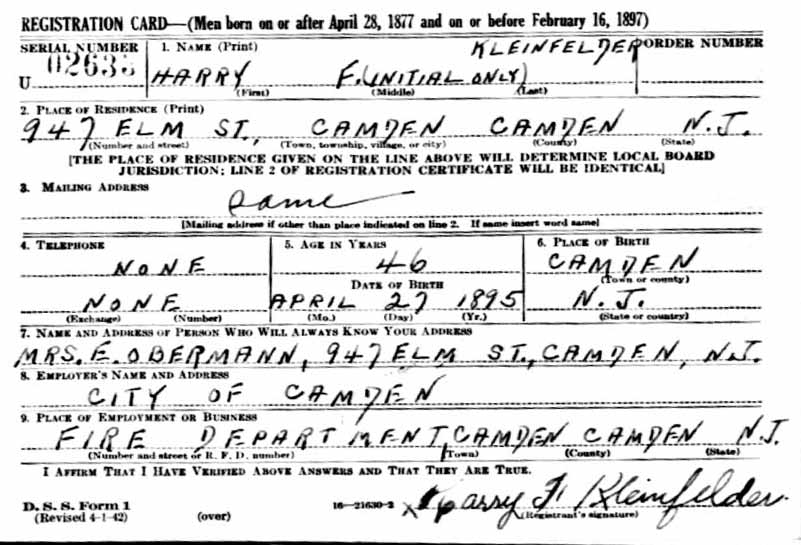 REGISTRATION CARD—(Men born on or after April 28, 1877 and on or before February 16, 1897)
SERIAL NUMBER 1. NAME (Print) ORDER NUMBER
KLEINFELDER
U 02635 HARRY F. (INITIAL ONLY)
(First) (Middle) (Last)
2. PLACE OF RESIDENCE (Print)
947 ELM ST., CAMDEN CAMDEN N.J.
(Number and street) (Town, township, village, or city) (County) (State)
[THE PLACE OF RESIDENCE GIVEN ON THE LINE ABOVE WILL DETERMINE LOCAL BOARD
JURISDICTION; LINE 2 OF REGISTRATION CERTIFICATE WILL BE IDENTICAL]
3. MAILING ADDRESS
Same
[Mailing address if other than place indicated on line 2. If same insert word same]
4. TELEPHONE 5. AGE IN YEARS 6. PLACE OF BIRTH
NONE 46 CAMDEN
DATE OF BIRTH (Town or county)
NONE APRIL 27 1895 N.J.
(Exchange) (Number) (Mo.) (Day) (Yr.) (State or country)
7. NAME AND ADDRESS OF PERSON WHO WILL ALWAYS KNOW YOUR ADDRESS
MRS. E. OBERMANN, 947 ELM ST., CAMDEN, N.J.
8. EMPLOYER'S NAME AND ADDRESS
CITY OF CAMDEN
9. PLACE OF EMPLOYMENT OR BUSINESS
FIRE DEPARTMENT, CAMDEN CAMDEN N.J.
(Number and street or R. F. D. number) (Town) (County) (State)
I AFFIRM THAT I HAVE VERIFIED ABOVE ANSWERS AND THAT THEY ARE TRUE.
D. S. S. Form 1
(Revised 4-1-42) (over) 16—21630-2 x Harry F. Kleinfelder
(Registrant's signature)